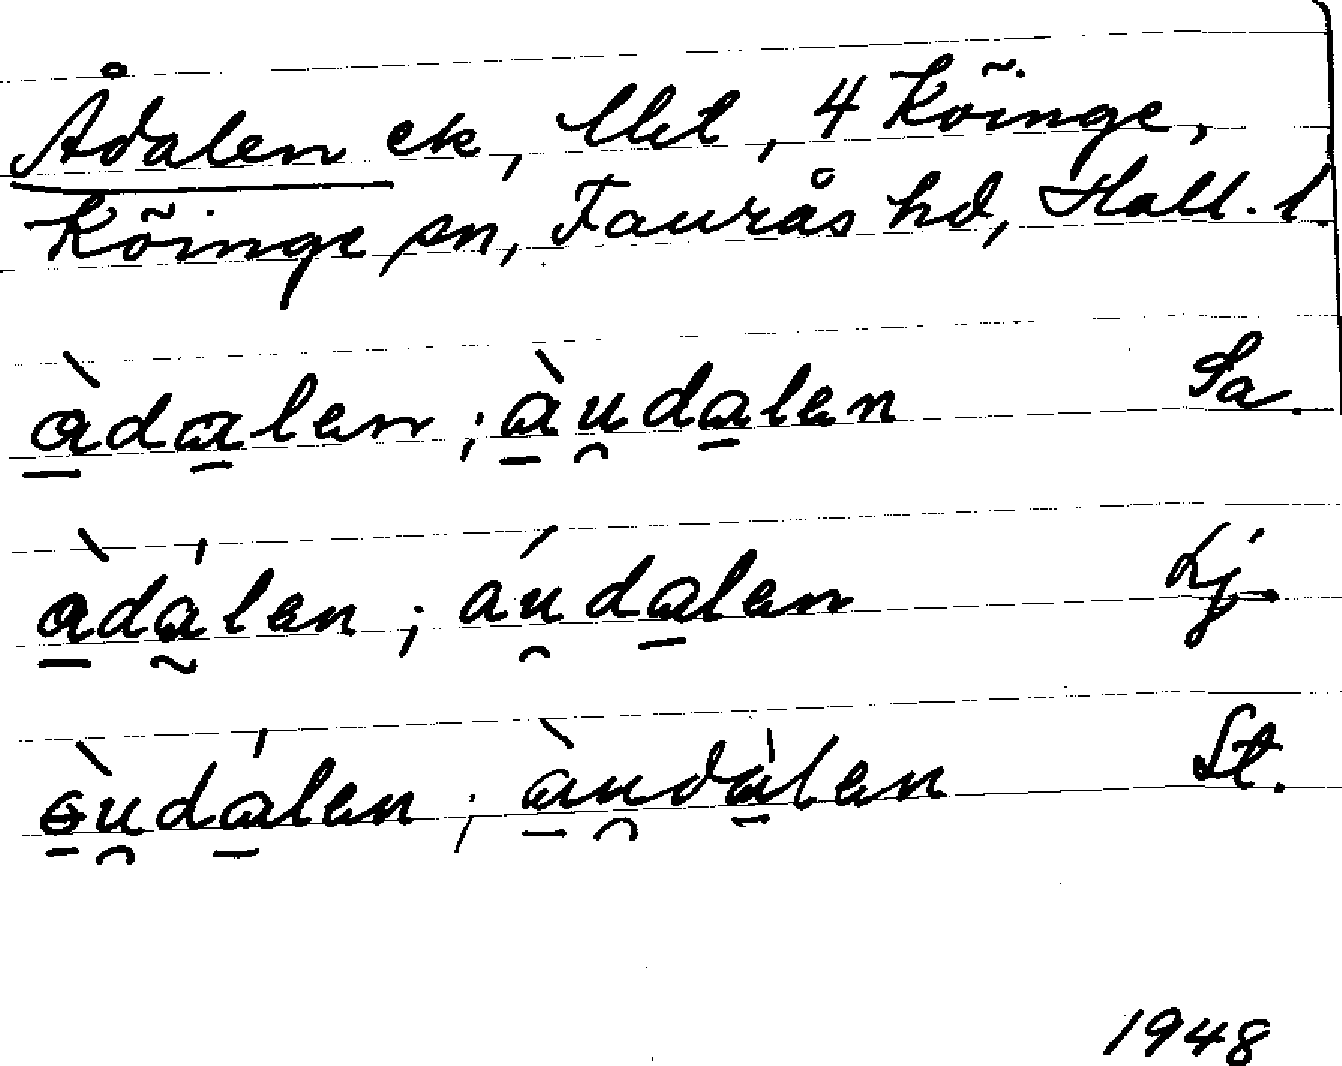 Ådalen ek, llet, 4 Köinge,
Köinge sn, Faurås hd, Hall. l.
àdalen; àudalen Sa.
àdálen; áudalen Lj.
òudálen; àudálen St.
1948